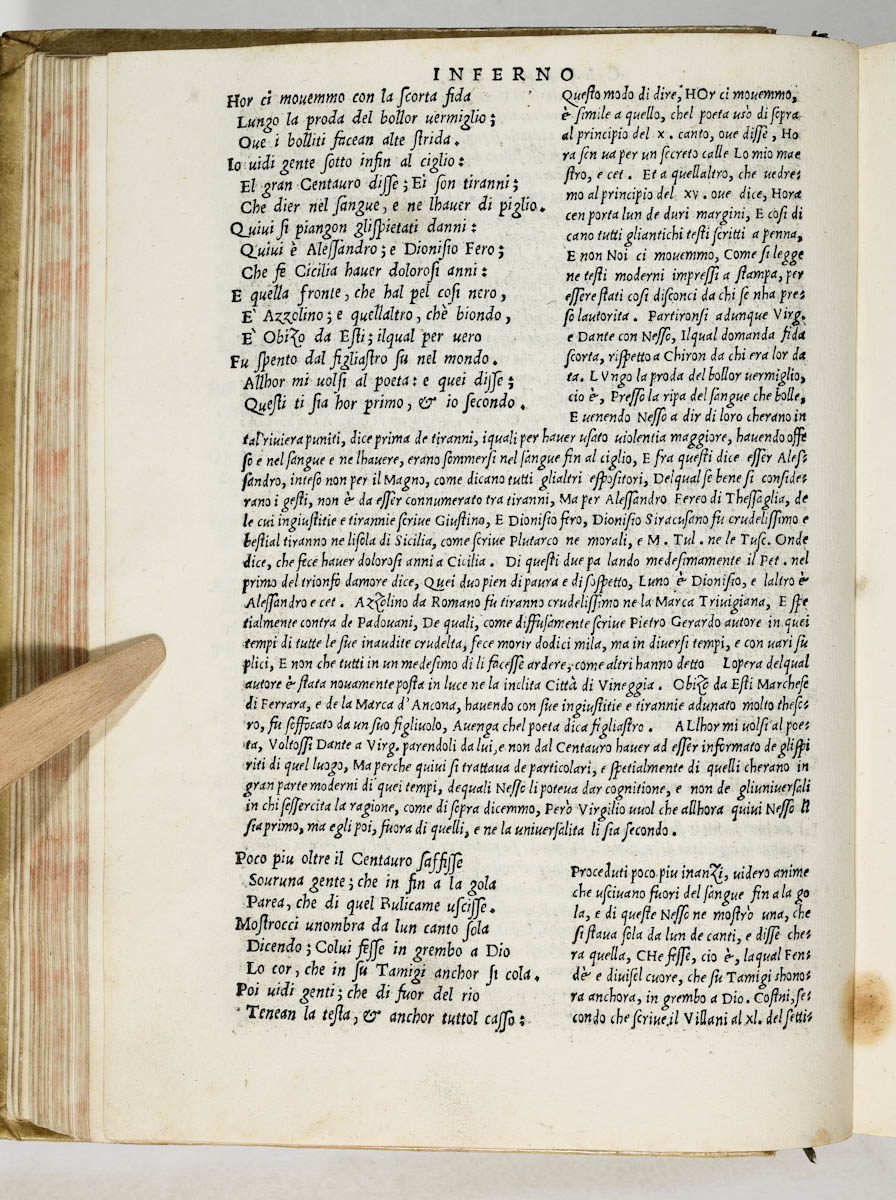 INFERNO
Hor ci mouemmo con la scorta fida
Lungo la proda del bollor uermiglio;
Oue i bolliti facean alte strida.
Io uidi gente sotto infin al ciglio:
El gran Centauro disse; Ei son tiranni;
Che dier nel sangue, e ne lhauer di piglio.
Quiui si piangon glispietati danni:
Quiui è Alessandro; e Dionisio Fero;
Che fe Cicilia hauer dolorosi anni:
E quella fronte, che hal pel cosi nero,
E' Azzolino; e quellaltro, chè biondo,
E' Obizo da Esti; ilqual per uero
Fu spento dal figliastro su nel mondo.
Allhor mi uolsi al poeta: e quei disse;
Questi ti sia hor primo, & io secondo.
Questo modo di dire, HOr ci mouemmo,
è simile a quello, chel poeta usò di sopra
al principio del x. canto, oue disse, Ho
ra sen ua per un secreto calle Lo mio mae
stro, e cet. Et a quellaltro, che uedre-
mo al principio del xv. oue dice, Hora
cen porta lun de duri margini, E cosi di
cano tutti gliantichi testi scritti a penna,
E non Noi ci mouemmo, Come si legge
ne testi moderni impressi a stampa, per
essere stati cosi disconci da chi se nha pre-
so lautorita. Partironsi adunque Virg.
e Dante con Nesso, Ilqual domanda fida
scorta, rispetto a Chiron da chi era lor da
ta. LUngo la proda del bollor uermiglio,
cio è, Presso la ripa del sangue che bolle,
E uenendo Nesso a dir di loro cherano in
tal riuiera puniti, dice prima de tiranni, iquali per hauer usato uiolentia maggiore, hauendo offe
so e nel sangue e ne lhauere, erano sommersi nel sangue fin al ciglio, E fra questi dice esser Ales-
sandro, inteso non per il Magno, come dicano tutti glialtri espositori, Delqual se bene si conside-
rano i gesti, non è da esser connumerato tra tiranni, Ma per Alessandro Fereo di Thessaglia, de
le cui ingiustitie e tirannie scriue Giustino, E Dionisio fero, Dionisio Siracusano fu crudelissimo e
bestial tiranno ne lisola di Sicilia, come scriue Plutarco ne morali, e M. Tul. ne le Tusc. Onde
dice, che fece hauer dolorosi anni a Cicilia. Di questi due pa lando medesimamente il Pet. nel
primo del trionfo damore dice, Quei duo pien di paura e di sospetto, Luno è Dionisio, e laltro è
Alessandro e cet. Azzolino da Romano fu tiranno crudelissimo ne la Marca Triuigiana, E spe
tialmente contra de Padouani, De quali, come diffusamente scriue Pietro Gerardo autore in quei
tempi di tutte le sue inaudite crudelta, fece morir dodici mila, ma in diuersi tempi, e con uari su
plici, E non che tutti in un medesimo di li facesse ardere, come altri hanno detto Lopera delqual
autore è stata nouamente posta in luce ne la inclita Città di Vineggia. Obizo da Esti Marchese
di Ferrara, e de la Marca d'Ancona, hauendo con sue ingiustitie e tirannie adunato molto theso-
ro, fu soffocato da un suo figliuolo, Auenga chel poeta dica figliastro. ALlhor mi uolsi al poe-
ta, Voltossi Dante a Virg. parendoli da lui, e non dal Centauro hauer ad esser informato de glispi
riti di quel luogo, Ma perche quiui si trattaua de particolari, e spetialmente di quelli cherano in
gran parte moderni di quei tempi, dequali Nesso li poteua dar cognitione, e non de gliuniuersali
in chi sessercita la ragione, come di sopra dicemmo, Però Virgilio uuol che allhora quiui Nesso li
sia primo, ma egli poi, fuora di quelli, e ne la uniuersalita li sia secondo.
Poco piu oltre il Centauro saffisse
Souruna gente; che in fin a la gola
Parea, che di quel Bulicame uscisse.
Mostrocci unombra da lun canto sola
Dicendo; Colui fesse in grembo a Dio
Lo cor, che in su Tamigi anchor si cola.
Poi uidi genti; che di fuor del rio
Tenean la testa, & anchor tuttol casso:
Proceduti poco piu inanzi, uidero anime
che usciuano fuori del sangue fin a la go
la, e di queste Nesso ne mostrò una, che
si staua sola da lun de canti, e disse che-
ra quella, CHe fesse, cio è, laqual Fen-
dè e diuisel cuore, che su Tamigi shono-
ra anchora, in grembo a Dio. Costui, se-
condo che scriue il Villani al xl. del setti-